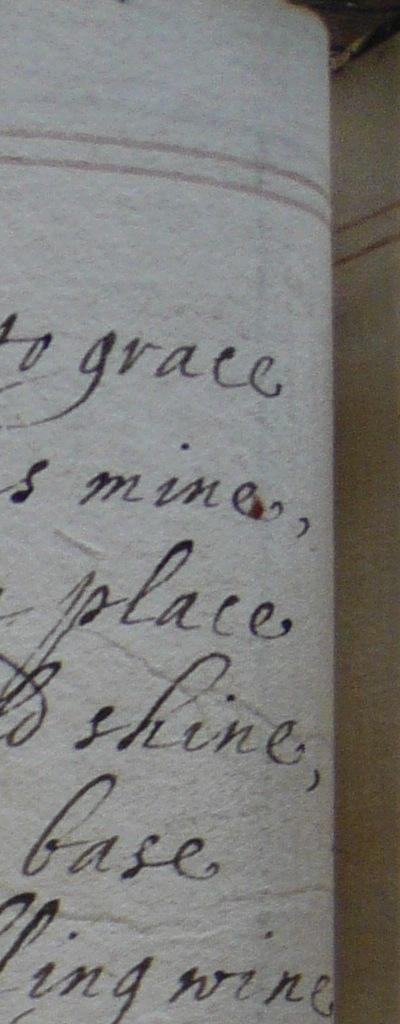 to grace
s mine,
place
shine,
base
ling wine